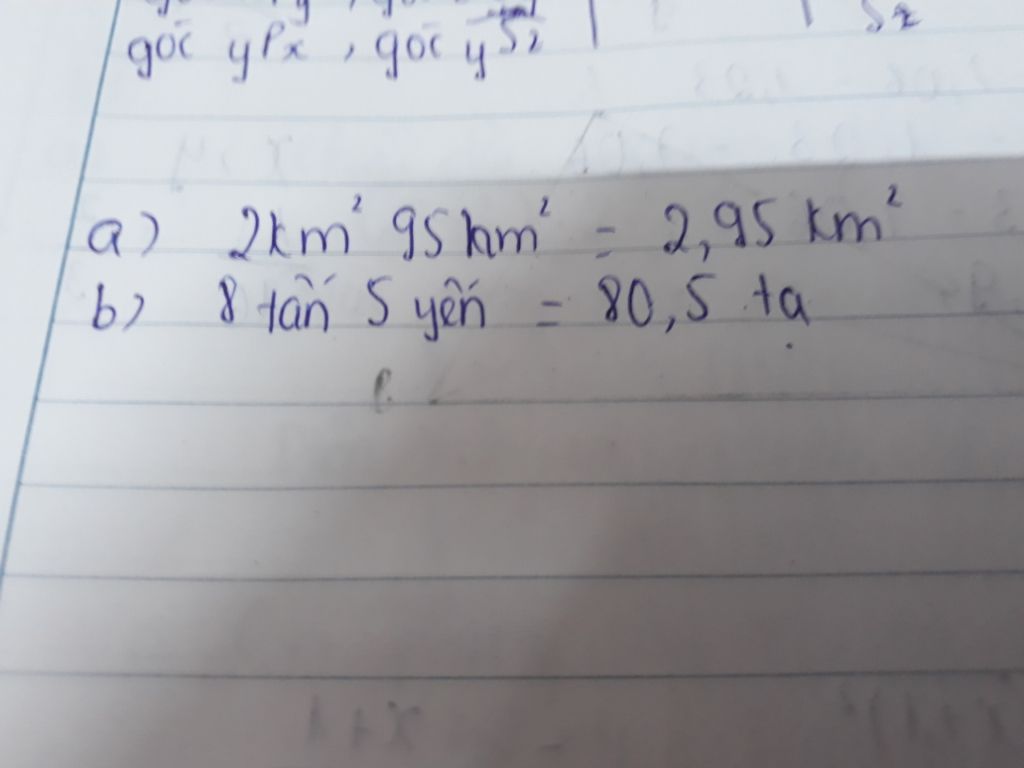 góc yPx, góc y
a) 2km² 95hm² = 2,95 km²
b) 8 tấn 5 yến = 80,5 tạ